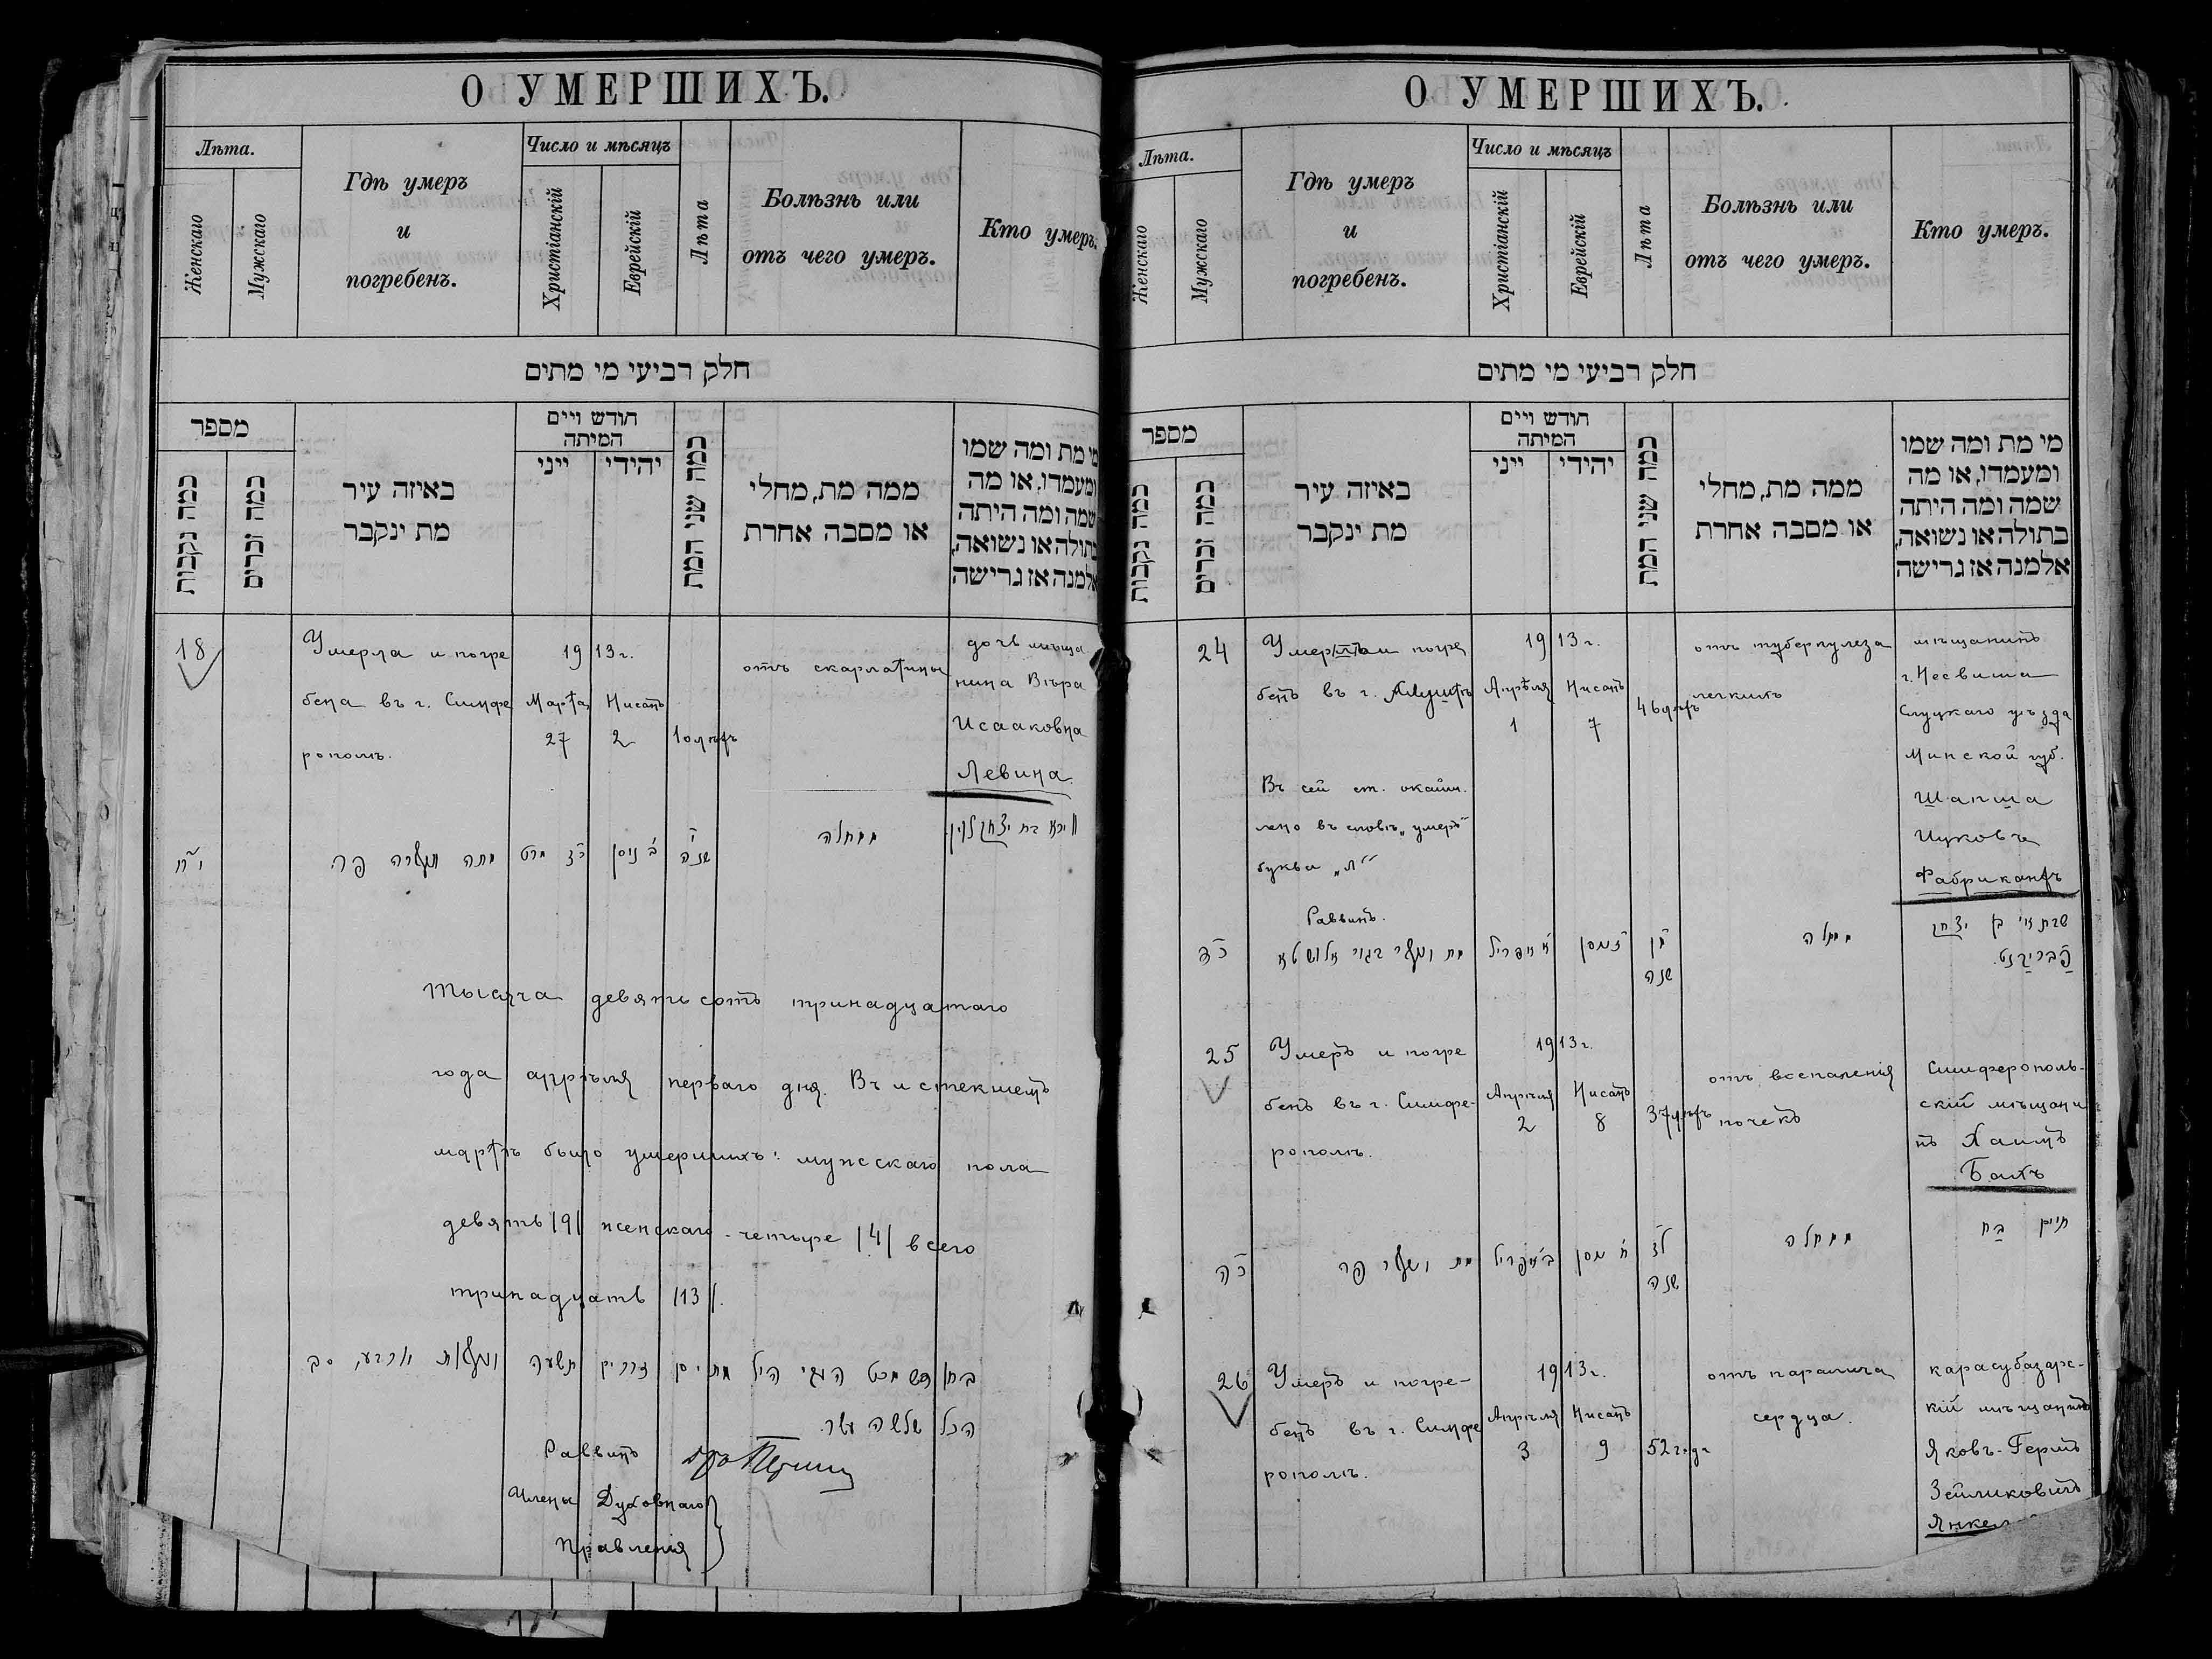 О УМЕРШИХЪ.
Лѣта.
Женскаго
Мужскаго
Гдѣ умеръ
и
погребенъ.
Число и мѣсяцъ
Христіанскій
Еврейскій
Лѣта
Болѣзнь или
отъ чего умеръ.
Кто умеръ.
חלק רביעי מי מתים
מספר
כמה נקבות
כמה זכרים
באיזה עיר
מת ינקבר
חודש ויים
המיתה
ייני
יהידי
כמה שני המת
ממה מת, מחלי
או מסבה אחרת
מי מת ומה שמו
ומעמדו, או מה
שמה ומה היתה
בתולה או נשואה,
אלמנה אז גרישה
18
Умерла и погре
бена въ г. Симфе
рополѣ.
1913 г.
Марта
27
Нисанъ
2
10 лѣтъ
отъ скарлатины
дочь мѣща
нина Вѣра
Исааковна
Левина.
י״ח
מתה
ב׳ ניסן
שנה
ממחלה
בת יצחק לוין
Тысяча девятьсотъ тринадцатаго
года апрѣля перваго дня. Въ истекшемъ
мартѣ было умершихъ: мужескаго пола
девять /9/ женскаго - четыре /4/ всего
тринадцать /13/.
הכל שלשה עשר.
Раввинъ
Члены Духовнаго
Правленія
О УМЕРШИХЪ.
Лѣта.
Женскаго
Мужскаго
Гдѣ умеръ
и
погребенъ.
Число и мѣсяцъ
Христіанскій
Еврейскій
Лѣта
Болѣзнь или
отъ чего умеръ.
Кто умеръ.
חלק רביעי מי מתים
מספר
כמה נקבות
כמה זכרים
באיזה עיר
מת ינקבר
חודש ויים
המיתה
ייני
יהידי
כמה שני המת
ממה מת, מחלי
או מסבה אחרת
מי מת ומה שמו
ומעמדו, או מה
שמה ומה היתה
בתולה או נשואה,
אלמנה אז גרישה
24
Умеръ и погре
бенъ въ г. Алуштѣ
1913 г.
Апрѣля
1
Нисанъ
7
46 лѣтъ
отъ туберкулеза
легкихъ
мѣщанинъ
г. Несвижа
Слуцкаго уѣзда
Минской губ.
Шапша
Ицковъ
Фабрикантъ
Въ сей ст.
въ словѣ „умеръ“
буква „л“
Раввинъ.
כ״ד
א׳ אפריל
ז׳ ניסן
שנה
מחלה
בן יצחק
פבריקנט.
25
Умеръ и погре
бенъ въ г. Симфе-
рополѣ.
1913 г.
Апрѣля
2
Нисанъ
8
37 лѣтъ
отъ воспаленія
почекъ
Симферополь-
скій мѣщани
нъ Хаимъ
Бахъ
כ״ה
ב׳ אפריל
ח׳ ניסן
ל״ז
שנה
ממחלה
חיים בח
26
Умеръ и погре-
бенъ въ г. Симфе
рополѣ.
1913 г.
Апрѣля
3
Нисанъ
9
52 года
отъ паралича
сердца.
карасубазарс-
кій мѣщанинъ
Яковъ-Гершъ
Зейликовичъ